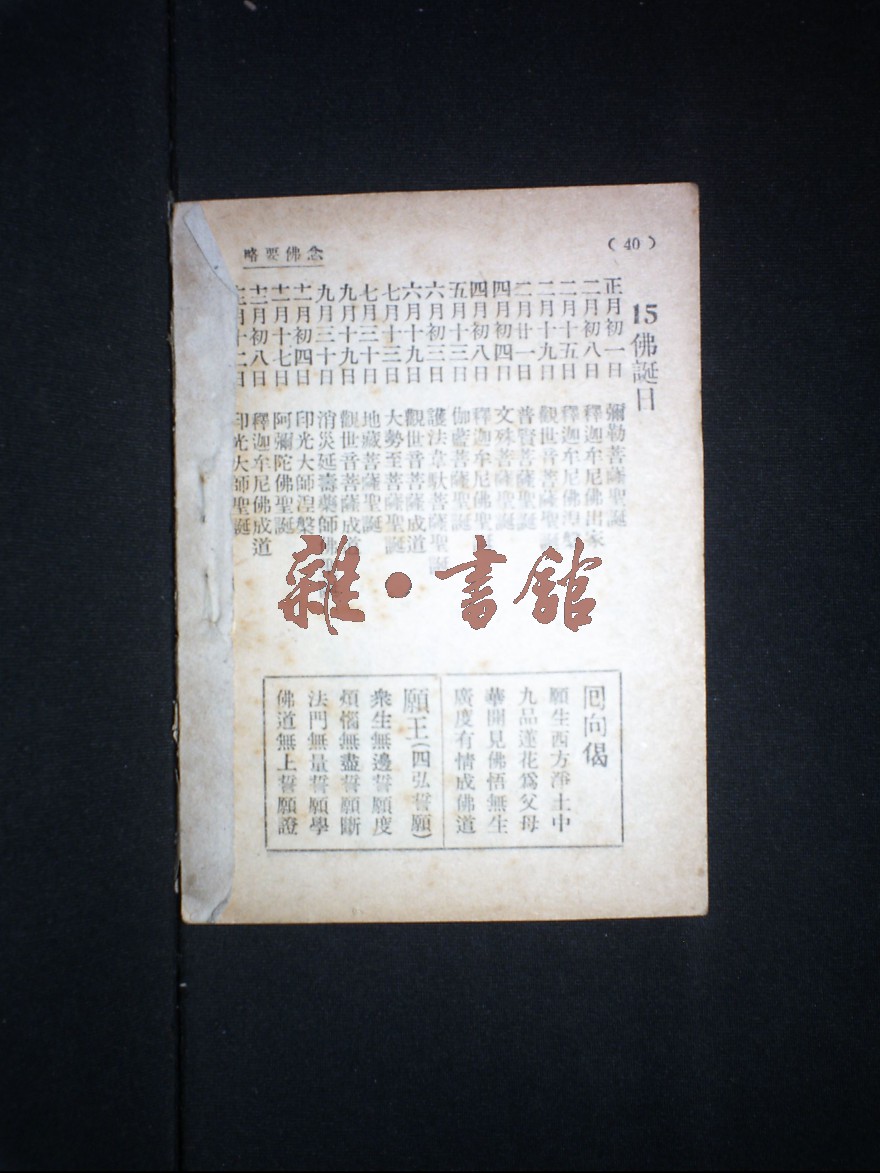 (40)
念佛要略
15佛誕日
正月初一日 彌勒菩薩聖誕
二月初八日 釋迦牟尼佛出家
二月十五日 釋迦牟尼佛涅槃
二月十九日 觀世音菩薩聖誕
二月廿一日 普賢菩薩聖誕
四月初四日 文殊菩薩聖誕
四月初八日 釋迦牟尼佛聖
五月十三日 伽藍菩薩聖誕
六月初三日 護法韋馱菩薩聖誕
六月十九日 觀世音菩薩成道
七月十三日 大勢至菩薩聖誕
七月三十日 地藏菩薩聖誕
九月十九日 觀世音菩薩成道
九月三十日 消災延壽藥師佛
十一月初四日 印光大師涅槃
十一月十七日 阿彌陀佛聖誕
十二月初八日 釋迦牟尼佛成道
十二月十二日 印光大師聖誕
雜·書館
回向偈
願生西方淨土中
九品蓮花為父母
華開見佛悟無生
廣度有情成佛道
願王(四弘誓願)
衆生無邊誓願度
煩惱無盡誓願斷
法門無量誓願學
佛道無上誓願證